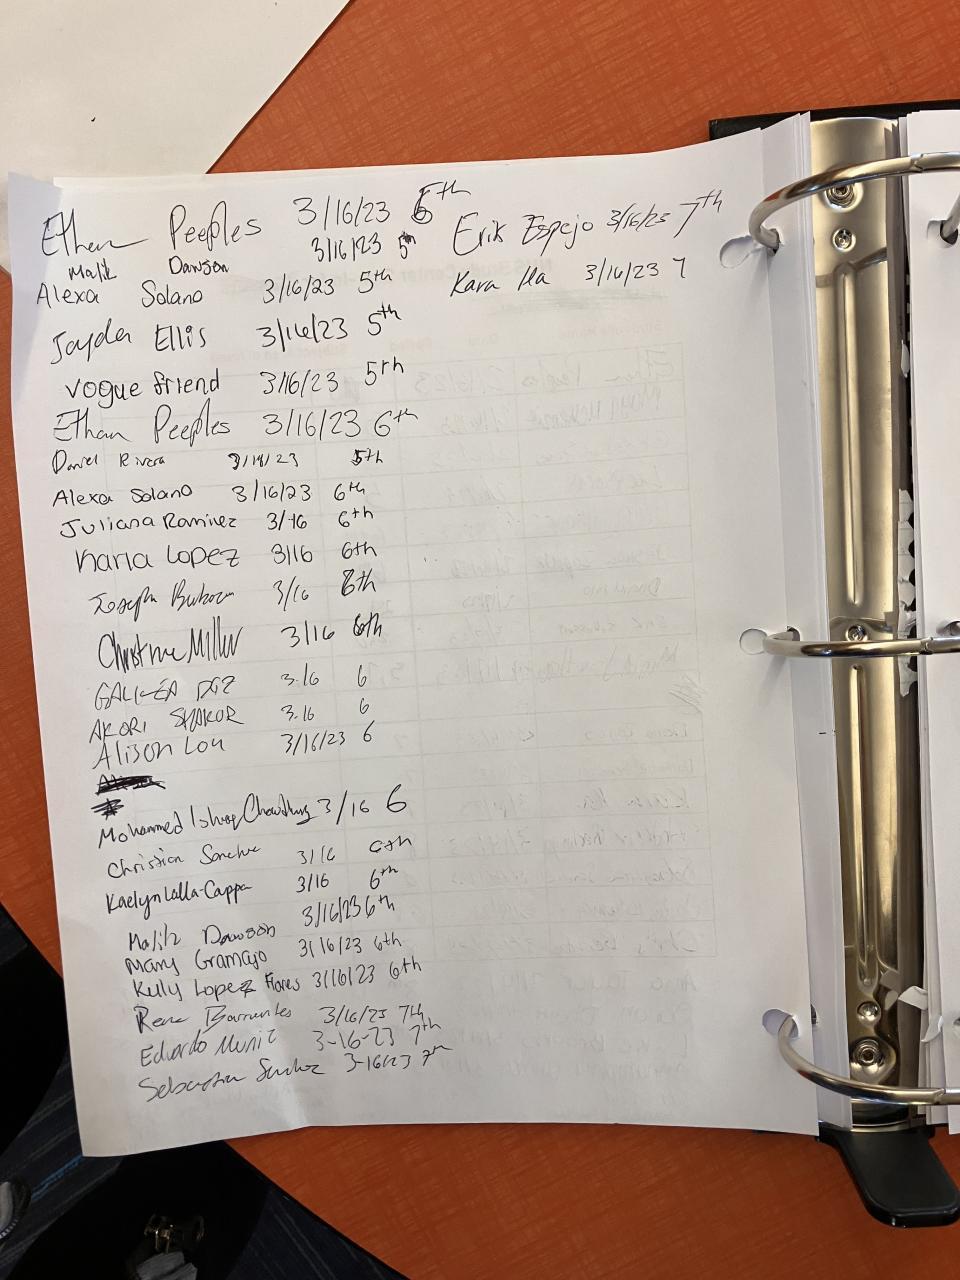 Ethan Peeples 3/16/23 5th
Malik Dawson 3/16/23 5th
Alexa Solano 3/16/23 5th
Jayden Ellis 3/16/23 5th
vogue friend 3/16/23 5th
Ethan Peeples 3/16/23 6th
Daniel Rivera 3/16/23 5th
Alexa Solano 3/16/23 6th
Juliana Ramirez 3/16 6th
Karla Lopez 3/16 6th
Joseph 3/16 6th
Christine Miller 3/16 6th
3.16 6
AKORI SHAKOR 3.16 6
Alison Lou 3/16/23 6
Mohammed Chowdhury 3/16 6
Christian Sanchez 3/16 6th
Kaelyn Lalla-Cappa 3/16 6th
Malik Dawson 3/16/23 6th
Mary Gramajo 3/16/23 6th
Kelly Lopez Flores 3/16/23 6th
Rene Barrientes 3/16/23 7th
Eduardo Muniz 3-16-23 7th
Sebastian Sanchez 3-16/23 7th
Erik Espejo 3/16/23 7th
Kara 3/16/23 7